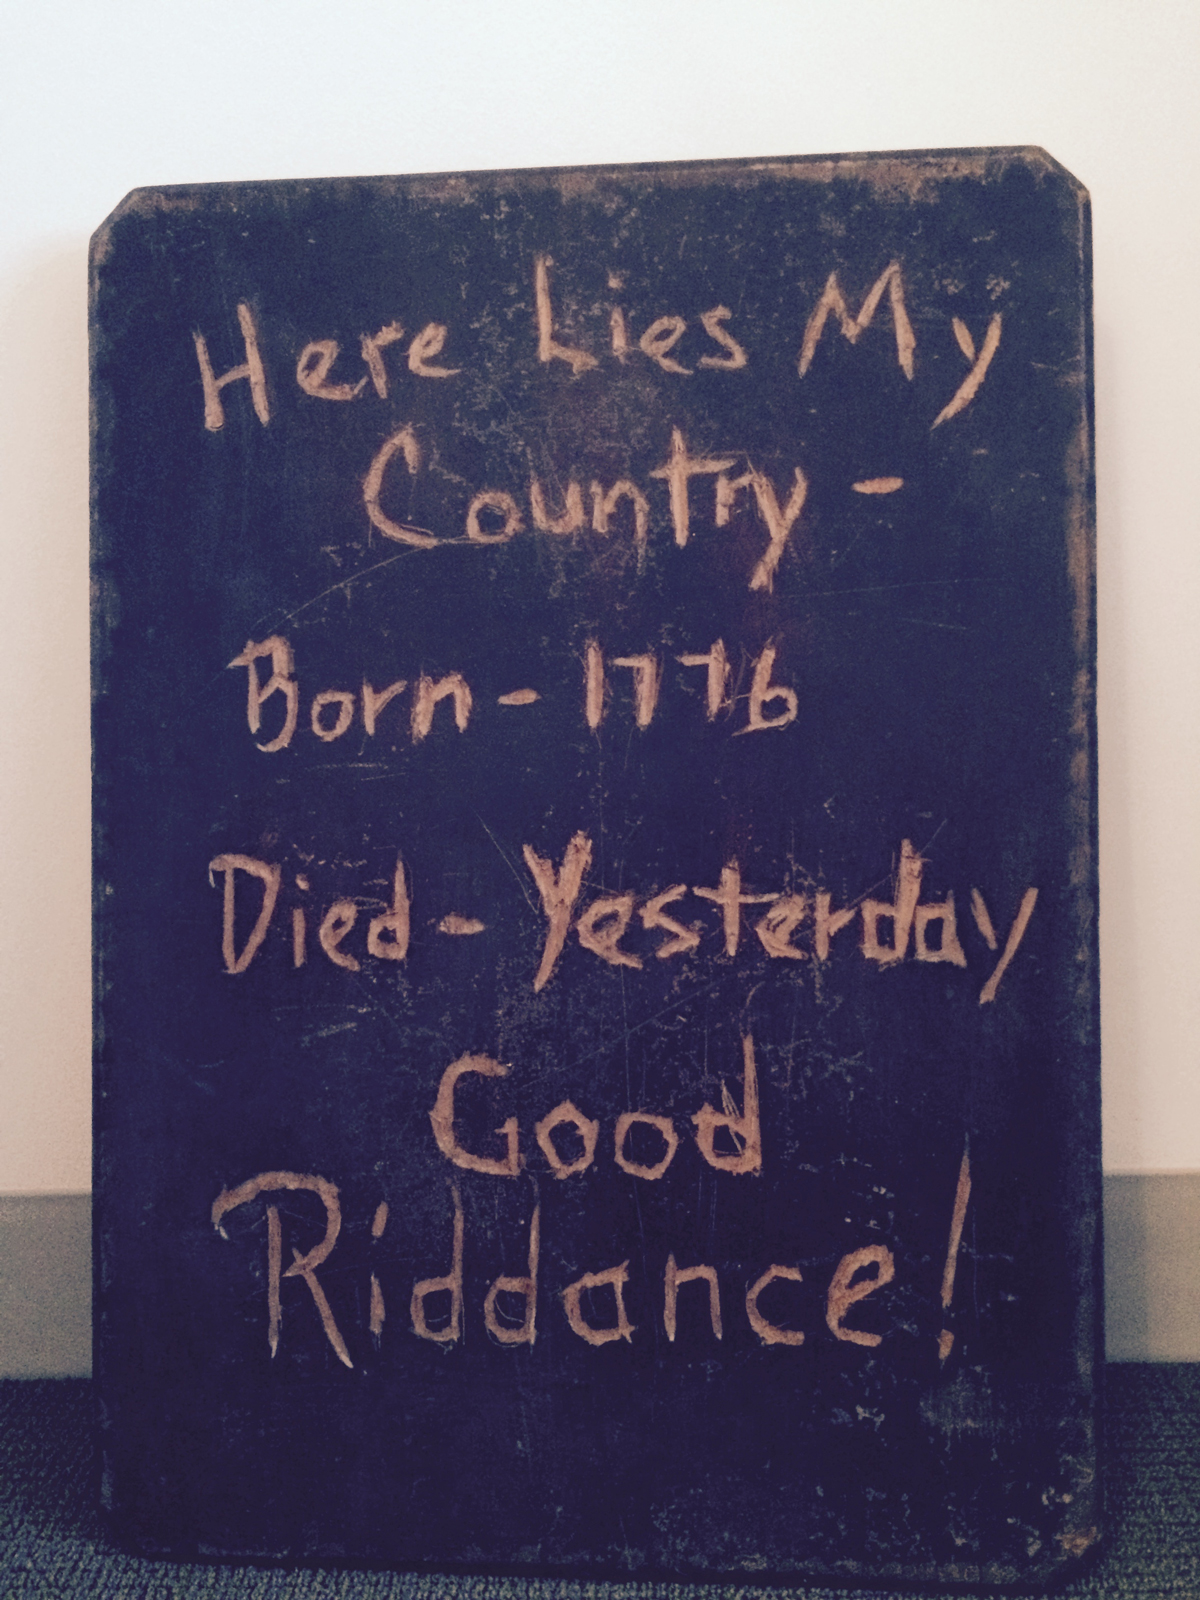 Here Lies My
Country -
Born - 1776
Died - Yesterday
Good
Riddance!